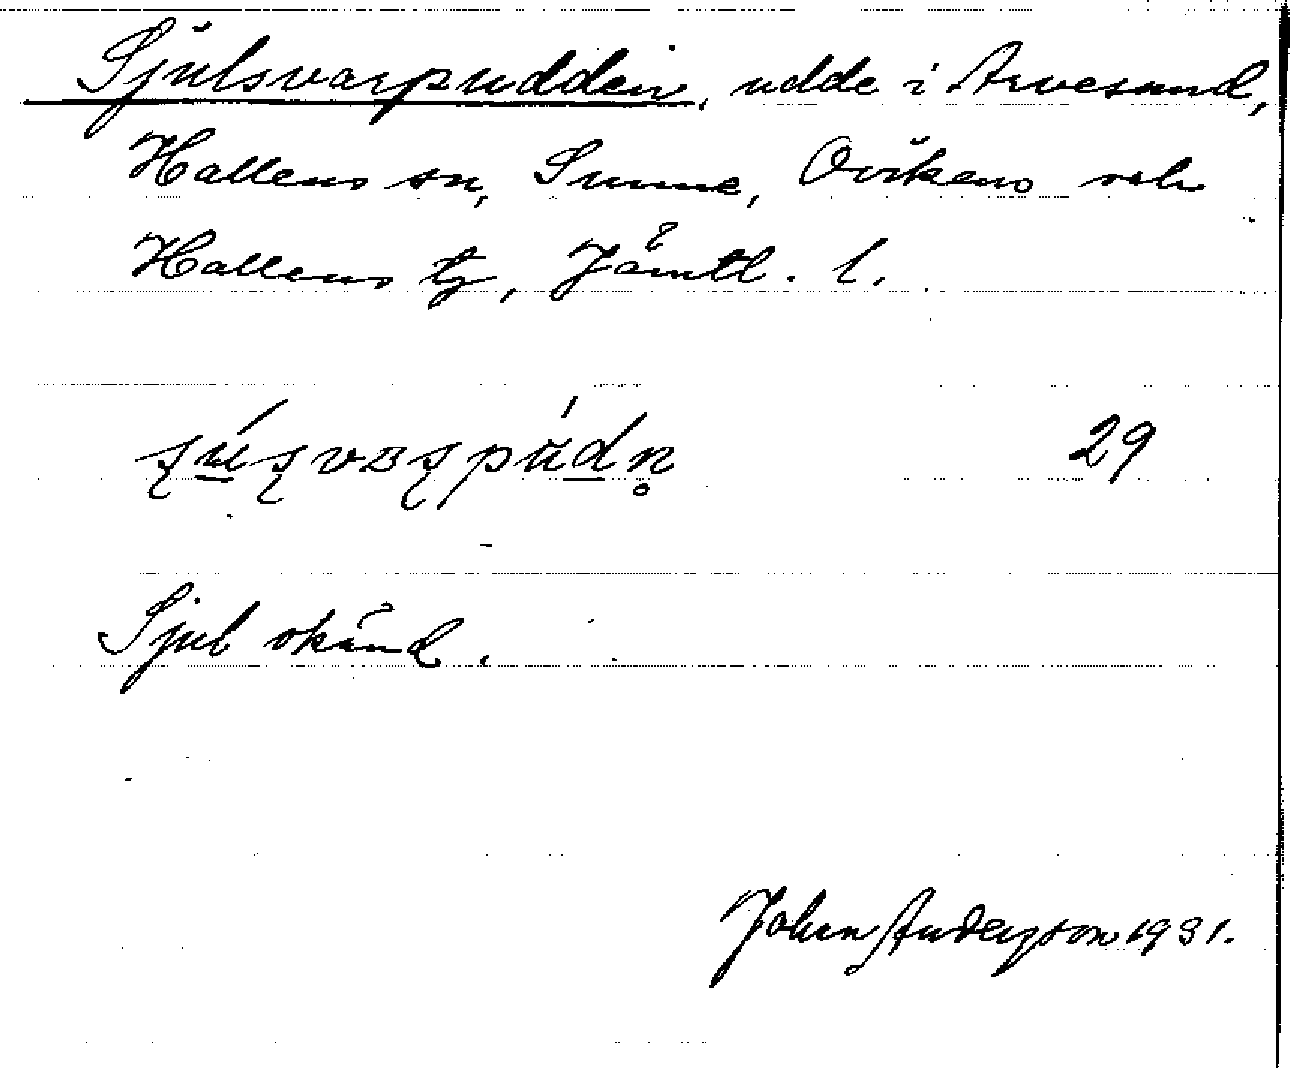 Sjulsvarpudden, udde i Arvesund,
Hallens sn, Sunne, Ovikens och
Hallens tg, Jämtl. l.
29
Sjul okänd.
John Anderson 1931.